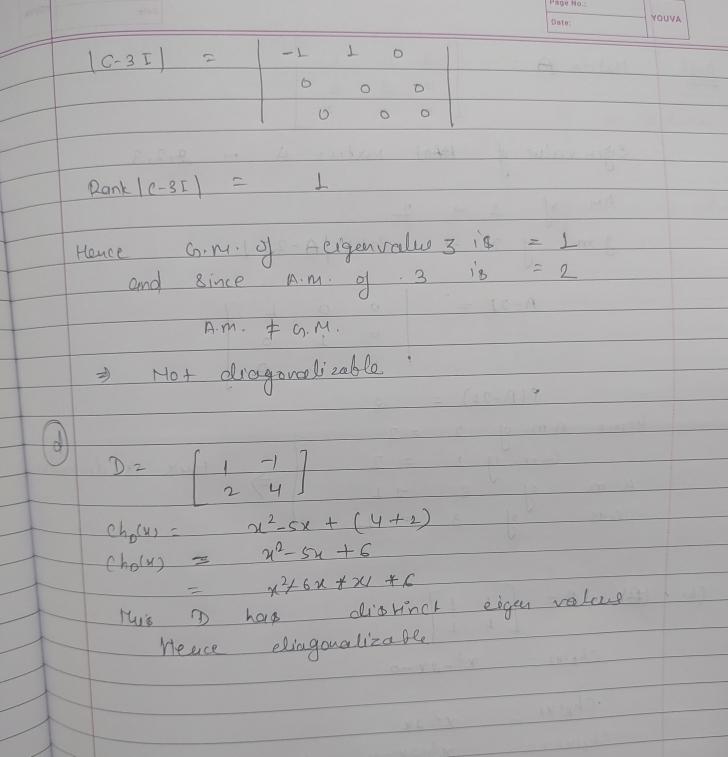 Page No.:
Date:
YOUVA
|C-3I| = | -1 1 0 |
0 0 0
0 0 0
Rank |C-3I| = 1
Hence G.M. of eigenvalue 3 is = 1
and since A.M. of 3 is = 2
A.M. ≠ G.M.
⇒ Not diagonalizable.
(d)
D = [ 1 -1
2 4 ]
Ch_D(x) = x²-5x + (4+2)
Ch_D(x) = x²-5x + 6
=
D has distinct eigen values
Hence diagonalizable